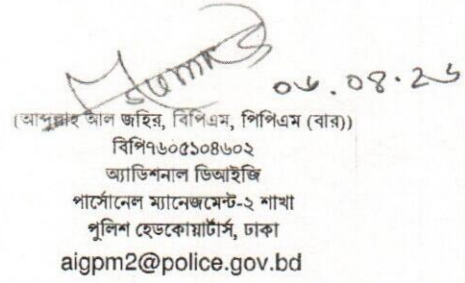 ০৬.০৪.২৬
(আব্দুল্লাহ আল জহির, বিপিএম, পিপিএম (বার))
বিপি৭৬০৫১০৪৬০২
অ্যাডিশনাল ডিআইজি
পার্সোনেল ম্যানেজমেন্ট-২ শাখা
পুলিশ হেডকোয়ার্টার্স, ঢাকা
aigpm2@police.gov.bd